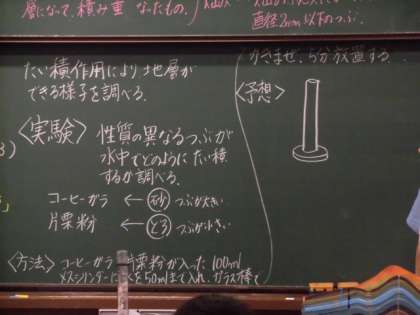 層になって、積み重なったもの。
直径2mm以下のつぶ。
たい積作用により地層が
できる様子を調べる。
〈実験〉 性質の異なるつぶが
水中でどのようにたい積
するか調べる。
コーヒーガラ ← 砂 つぶが大きい
片栗粉 ← どろ つぶが小さい
〈方法〉 コーヒーガラ 片栗粉が入った 100ml
メスシリンダーに を50mlまで入れ、ガラス棒で
かきまぜ、5分放置する。
〈予想〉